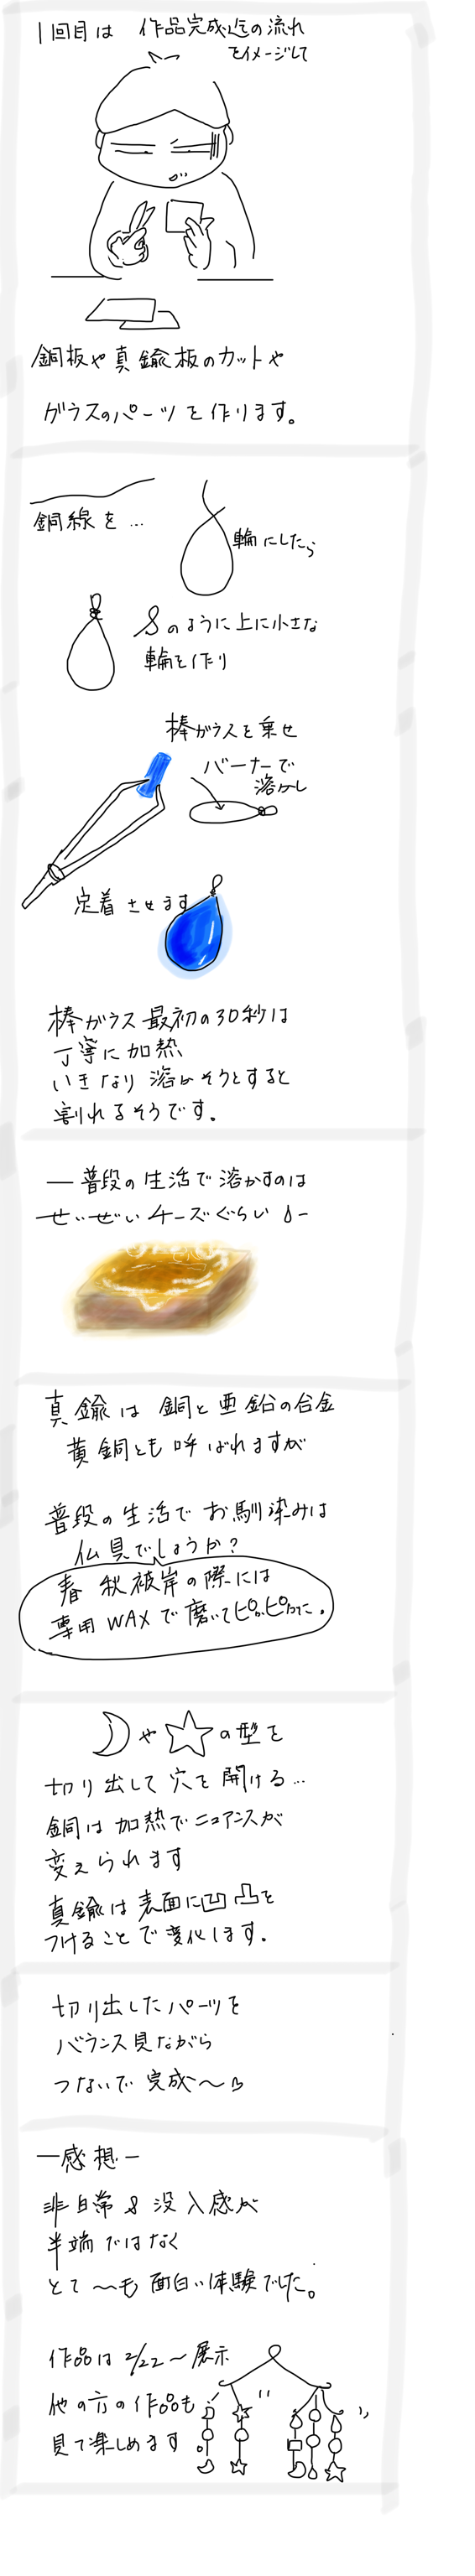 1回目は 作品完成迄の流れ
をイメージして
銅板や真鍮板のカットや
ガラスのパーツを作ります。
銅線を…
輪にしたら
8のように上に小さな
輪を作り
棒ガラスを乗せ
バーナーで
溶かし
定着させます
棒ガラス最初の30秒は
丁寧に加熱
いきなり溶かそうとすると
割れるそうです。
ー普段の生活で溶かすのは
せいぜいチーズぐらいー
真鍮は銅と亜鉛の合金
黄銅とも呼ばれますが
普段の生活でお馴染みは
仏具でしょうか？
春秋彼岸の際には
専用WAXで磨いてピカピカに。
や の型を
切り出して穴を開ける…
銅は加熱でニュアンスが
変えられます
真鍮は表面に凹凸を
つけることで変化します。
切り出したパーツを
バランス見ながら
つないで完成〜
ー感想ー
非日常&没入感が
半端ではなく
とて〜も面白い体験でした。
作品は2/22〜展示
他の方の作品も
見て楽しめます。